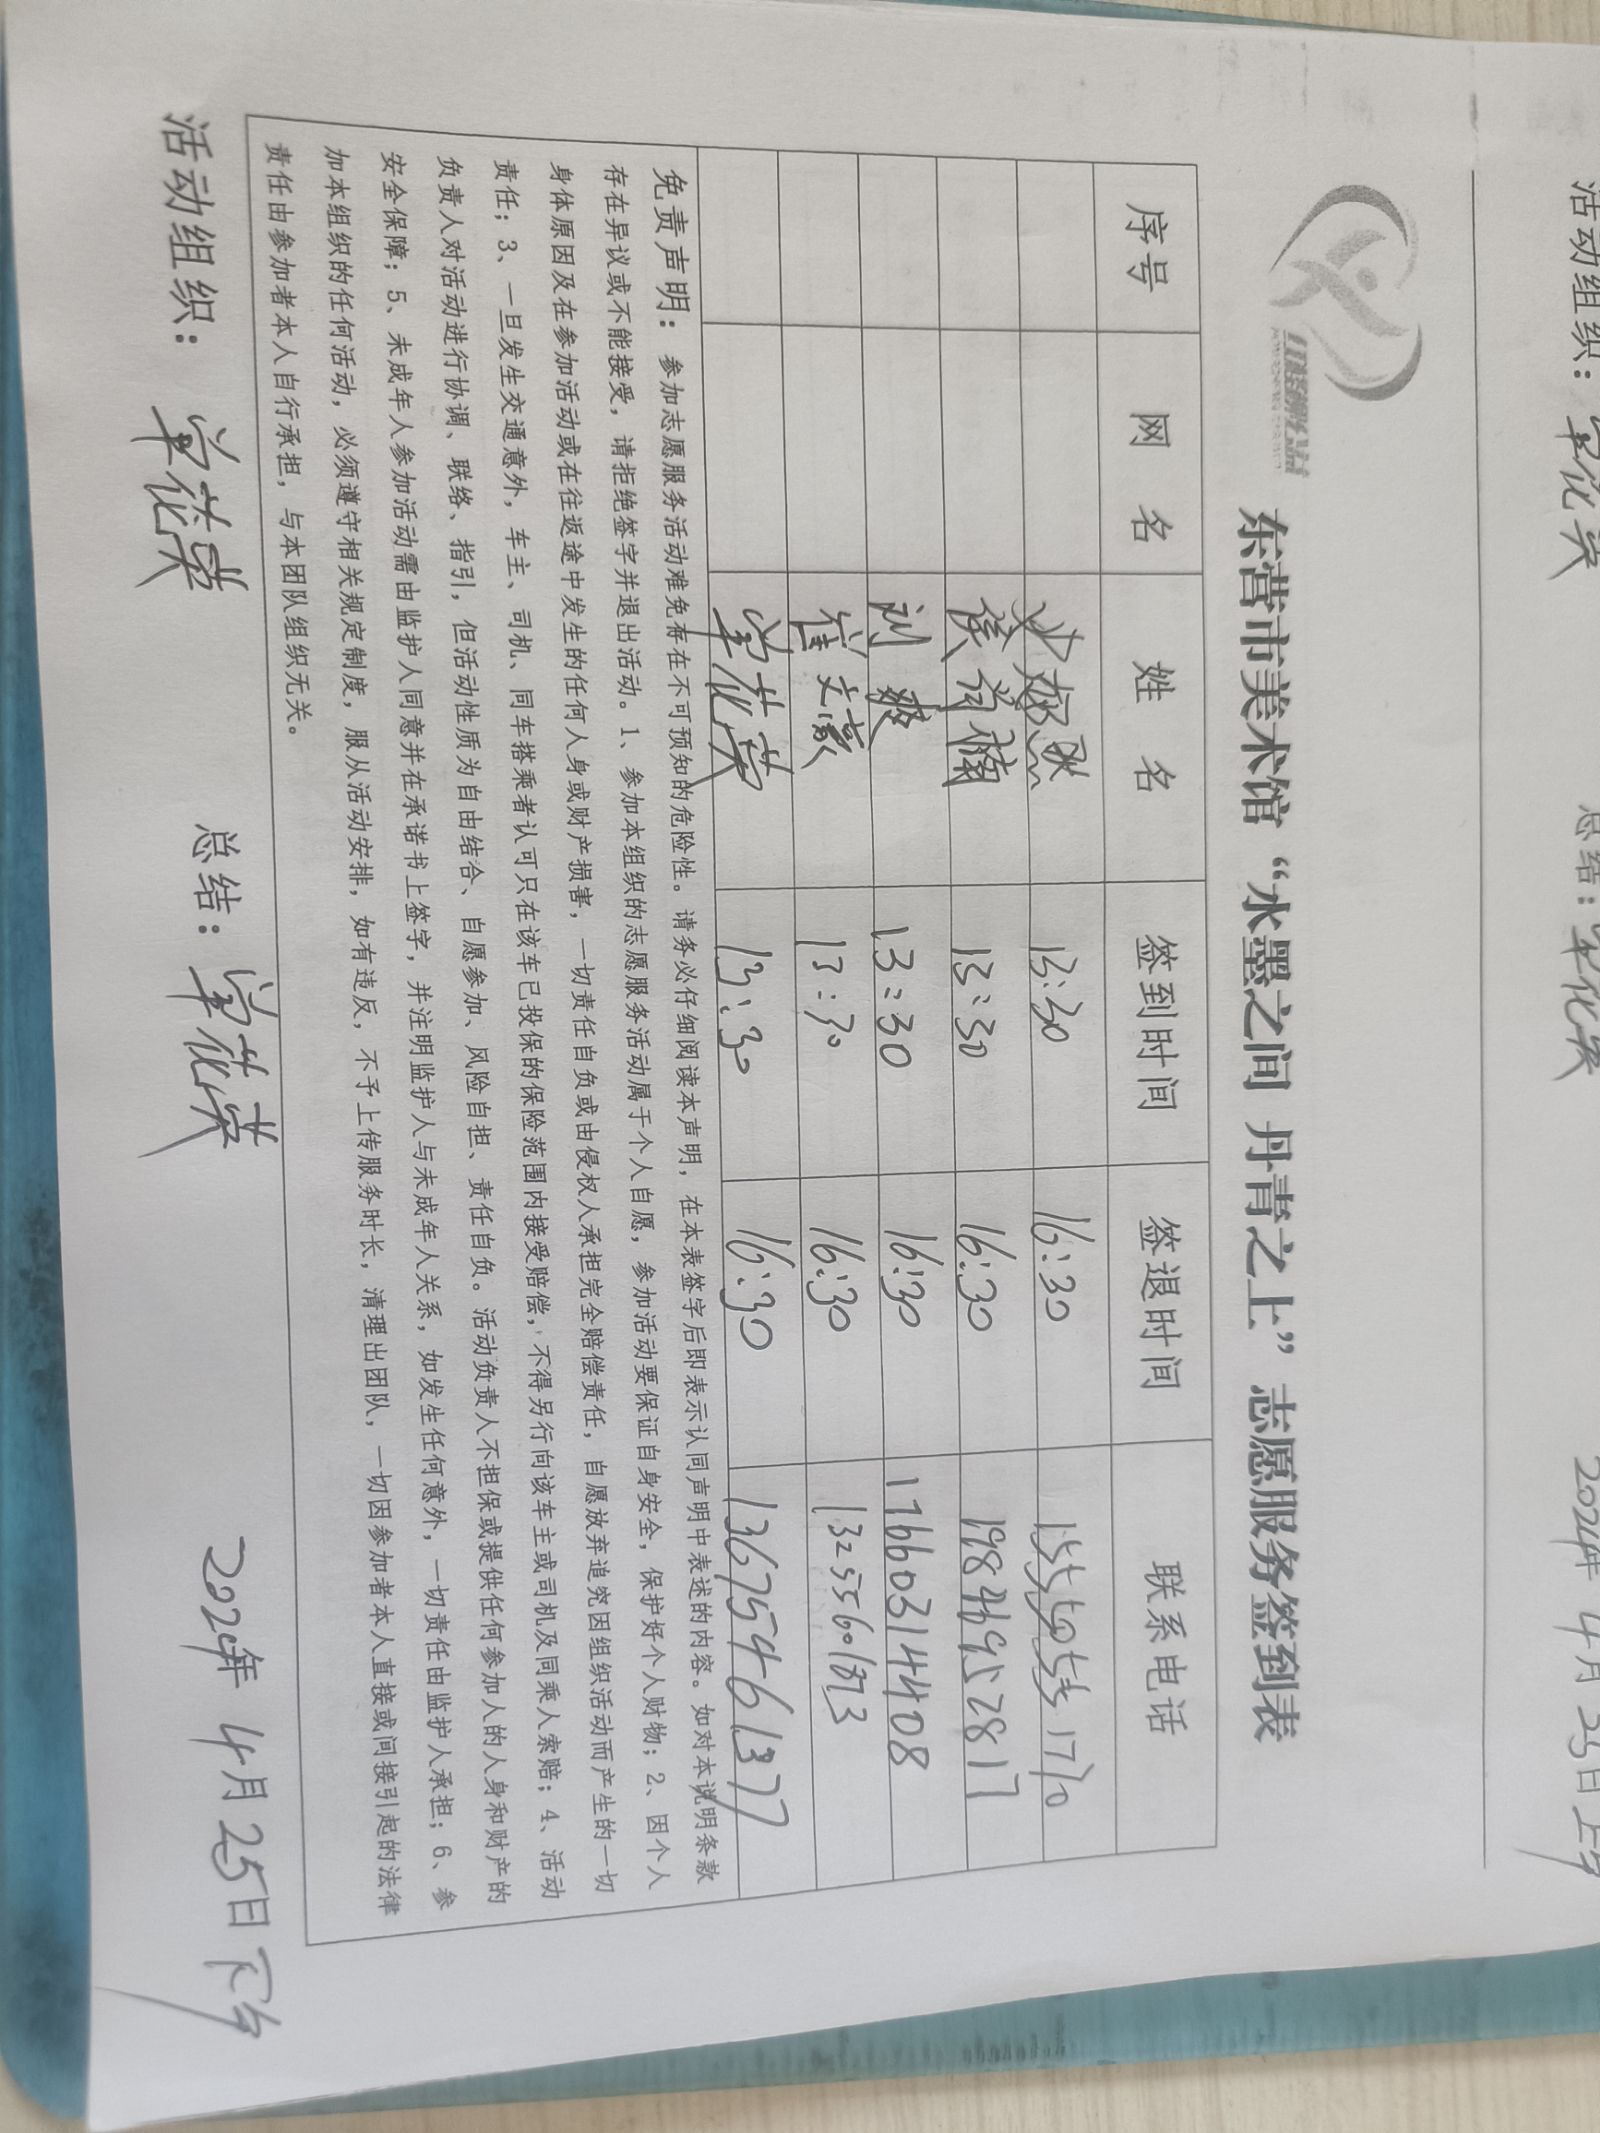 活动组织：单化英 总结：单化英 2024年4月25日上午
东营市美术馆“水墨之间 丹青之上”志愿服务签到表
序号 网 名 姓 名 签到时间 签退时间 联系电话
13:30 16:30
13:30 16:30 19846952817
刘爽 13:30 16:30 17660314408
崔文薇 13:30 16:30 13255601873
单化英 13:30 16:30 13675461377
免责声明：参加志愿服务活动难免存在不可预知的危险性。请务必仔细阅读本声明，在本表签字后即表示认同声明中表述的内容。如对本说明条款
存在异议或不能接受，请拒绝签字并退出活动。1、参加本组织的志愿服务活动属于个人自愿，参加活动要保证自身安全，保护好个人财物；2、因个人
身体原因及在参加活动或在往返途中发生的任何人身或财产损害，一切责任自负或由侵权人承担完全赔偿责任，自愿放弃追究因组织活动而产生的一切
责任；3、一旦发生交通意外，车主、司机、同车搭乘者认可只在该车已投保的保险范围内接受赔偿，不得另行向该车主或司机及同乘人索赔；4、活动
负责人对活动进行协调、联络、指引，但活动性质为自由结合、自愿参加、风险自担、责任自负。活动负责人不担保或提供任何参加人的人身和财产的
安全保障；5、未成年人参加活动需由监护人同意并在承诺书上签字，并注明监护人与未成年人关系，如发生任何意外，一切责任由监护人承担；6、参
加本组织的任何活动，必须遵守相关规定制度，服从活动安排，如有违反，不予上传服务时长，清理出团队，一切因参加者本人直接或间接引起的法律
责任由参加者本人自行承担，与本团队组织无关。
活动组织：单化英 总结：单化英 2024年4月25日下午